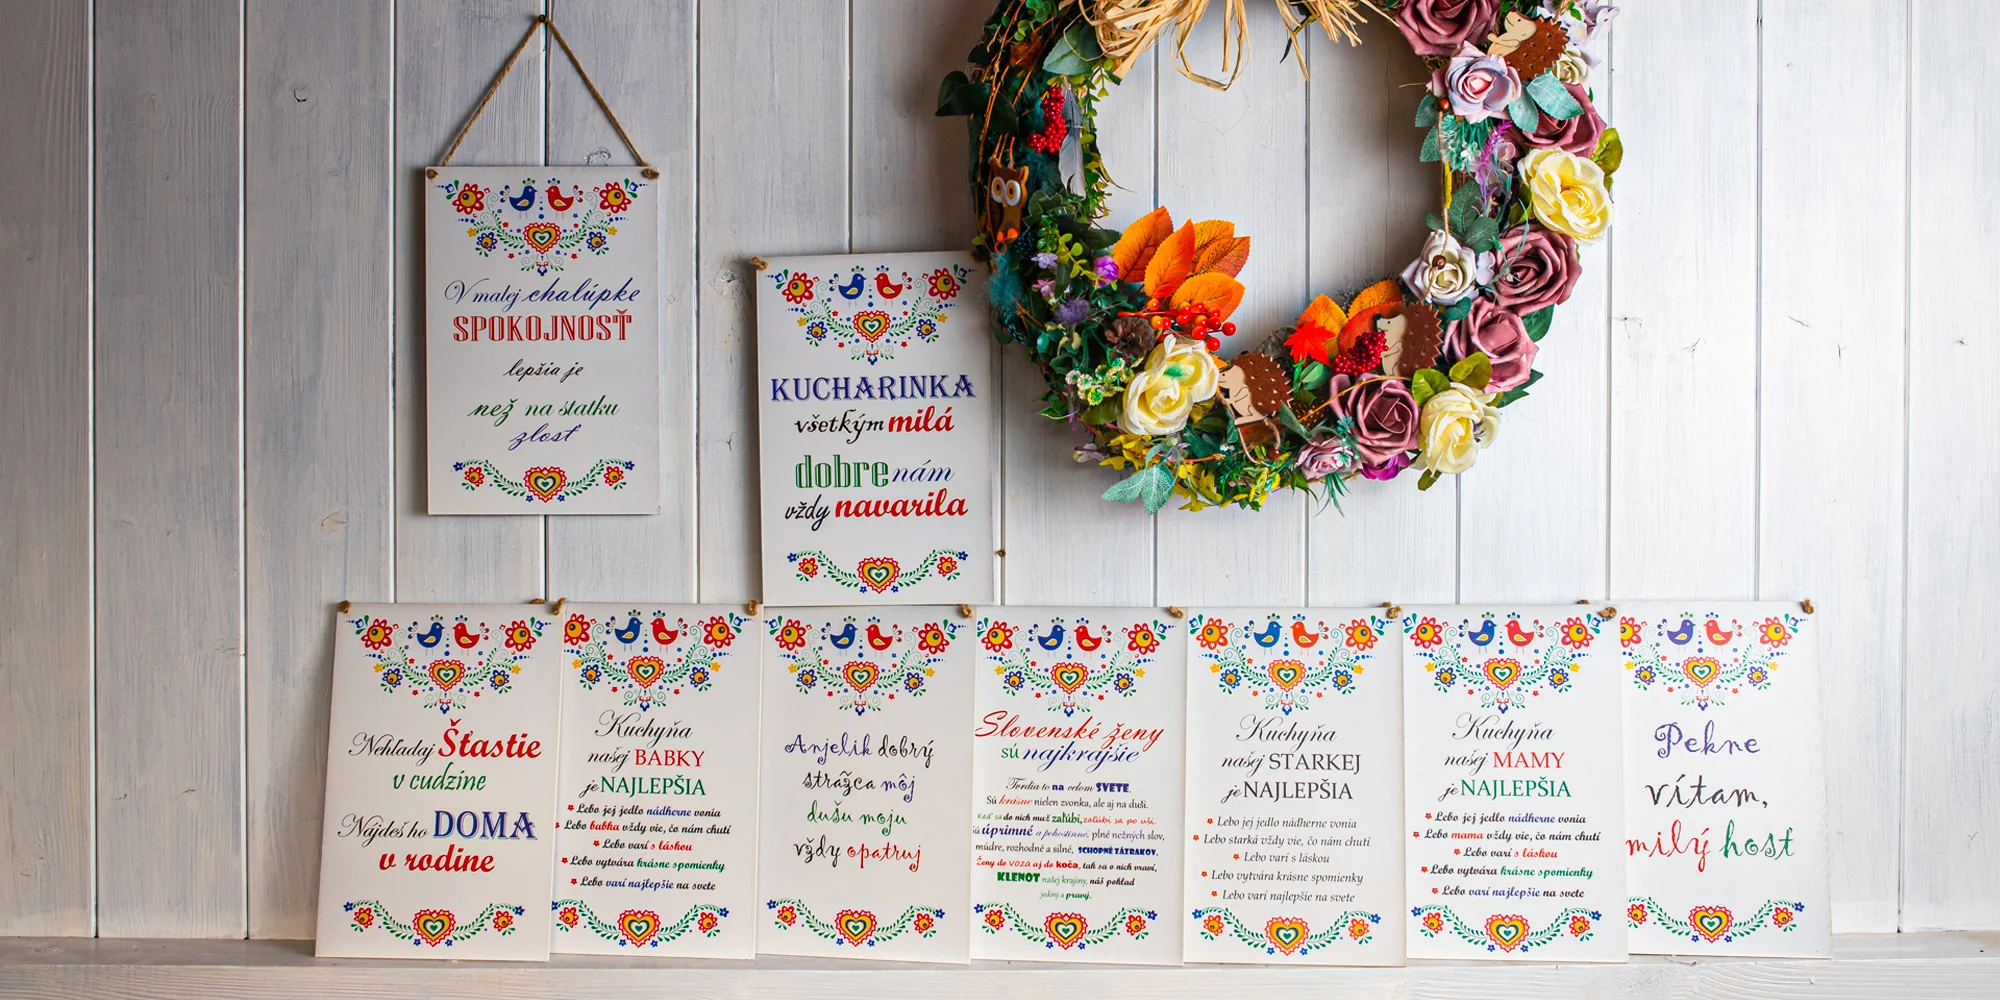 V malej chalúpke
SPOKOJNOSŤ
lepšia je
než na statku
zlosť
KUCHARINKA
všetkým milá
dobre nám
vždy navarila
Nehľadaj Šťastie
v cudzine
Nájdeš ho DOMA
v rodine
Kuchyňa
našej BABKY
je NAJLEPŠIA
Lebo jej jedlo nádherne vonia
Lebo babka vždy vie, čo nám chutí
Lebo varí s láskou
Lebo vytvára krásne spomienky
Lebo varí najlepšie na svete
Anjelik dobrý
strážca môj
dušu moju
vždy opatruj
Slovenské ženy
sú najkrajšie
Tvrdia to na celom SVETE.
Sú krásne nielen zvonka, ale aj na duši.
Keď sa do nich muž zaľúbi, zaľúbi sa po uši.
úprimné a pohostinné, plné nežných slov,
múdre, rozhodné a silné, SCHOPNÉ ZÁZRAKOV.
Ženy do voza aj do koča, tak sa o nich vraví,
KLENOT našej krajiny, náš poklad
jediný a pravý.
Kuchyňa
našej STARKEJ
je NAJLEPŠIA
Lebo jej jedlo nádherne vonia
Lebo starká vždy vie, čo nám chutí
Lebo varí s láskou
Lebo vytvára krásne spomienky
Lebo varí najlepšie na svete
Kuchyňa
našej MAMY
je NAJLEPŠIA
Lebo jej jedlo nádherne vonia
Lebo mama vždy vie, čo nám chutí
Lebo varí s láskou
Lebo vytvára krásne spomienky
Lebo varí najlepšie na svete
Pekne
vítam,
milý hosť